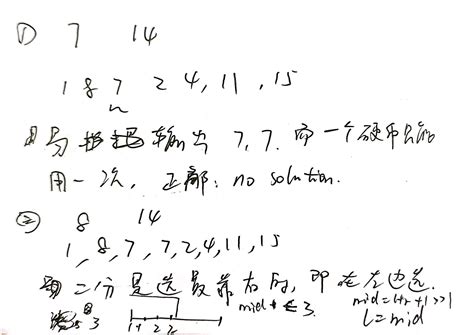 ① 7 14
1 8 7 2 4, 11, 15
易 输出 7, 7. 而一个硬币只能
用一次, 正解: no solution.
② 8 14
1, 8, 7, 7, 2, 4, 11, 15
二分是选最靠右的, 即在左边选.
mid ≤ 3.
mid = l+r+1>>1
l = mid
3
1 2 2